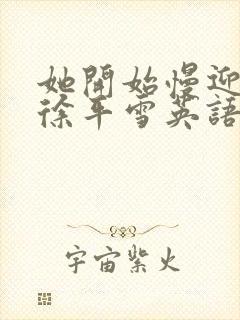 她開始慢迎
徐平雪英語
宇宙紫火